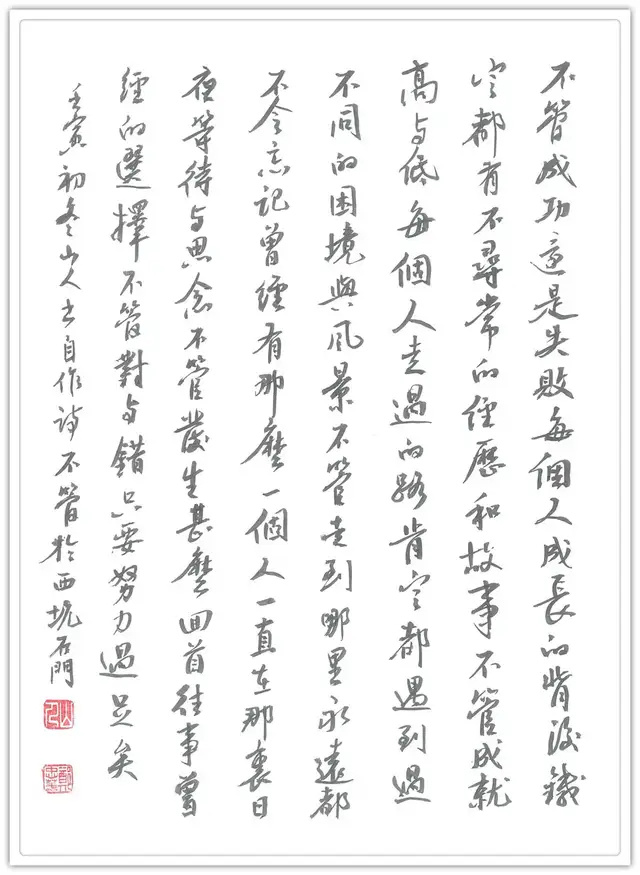 不管成功還是失敗每個人成長的背後鐵
定都有不尋常的經歷和故事不管成就
高与低每個人走過的路肯定都遇到過
不同的困境與風景不管走到哪里永遠都
不会忘記曾經有那麼一個人一直在那裏日
夜等待与思念不管發生甚麼回首往事曾
經的選擇不管對与錯只要努力過足矣
壬寅初冬山人书自作诗不管於西坑石門
山人